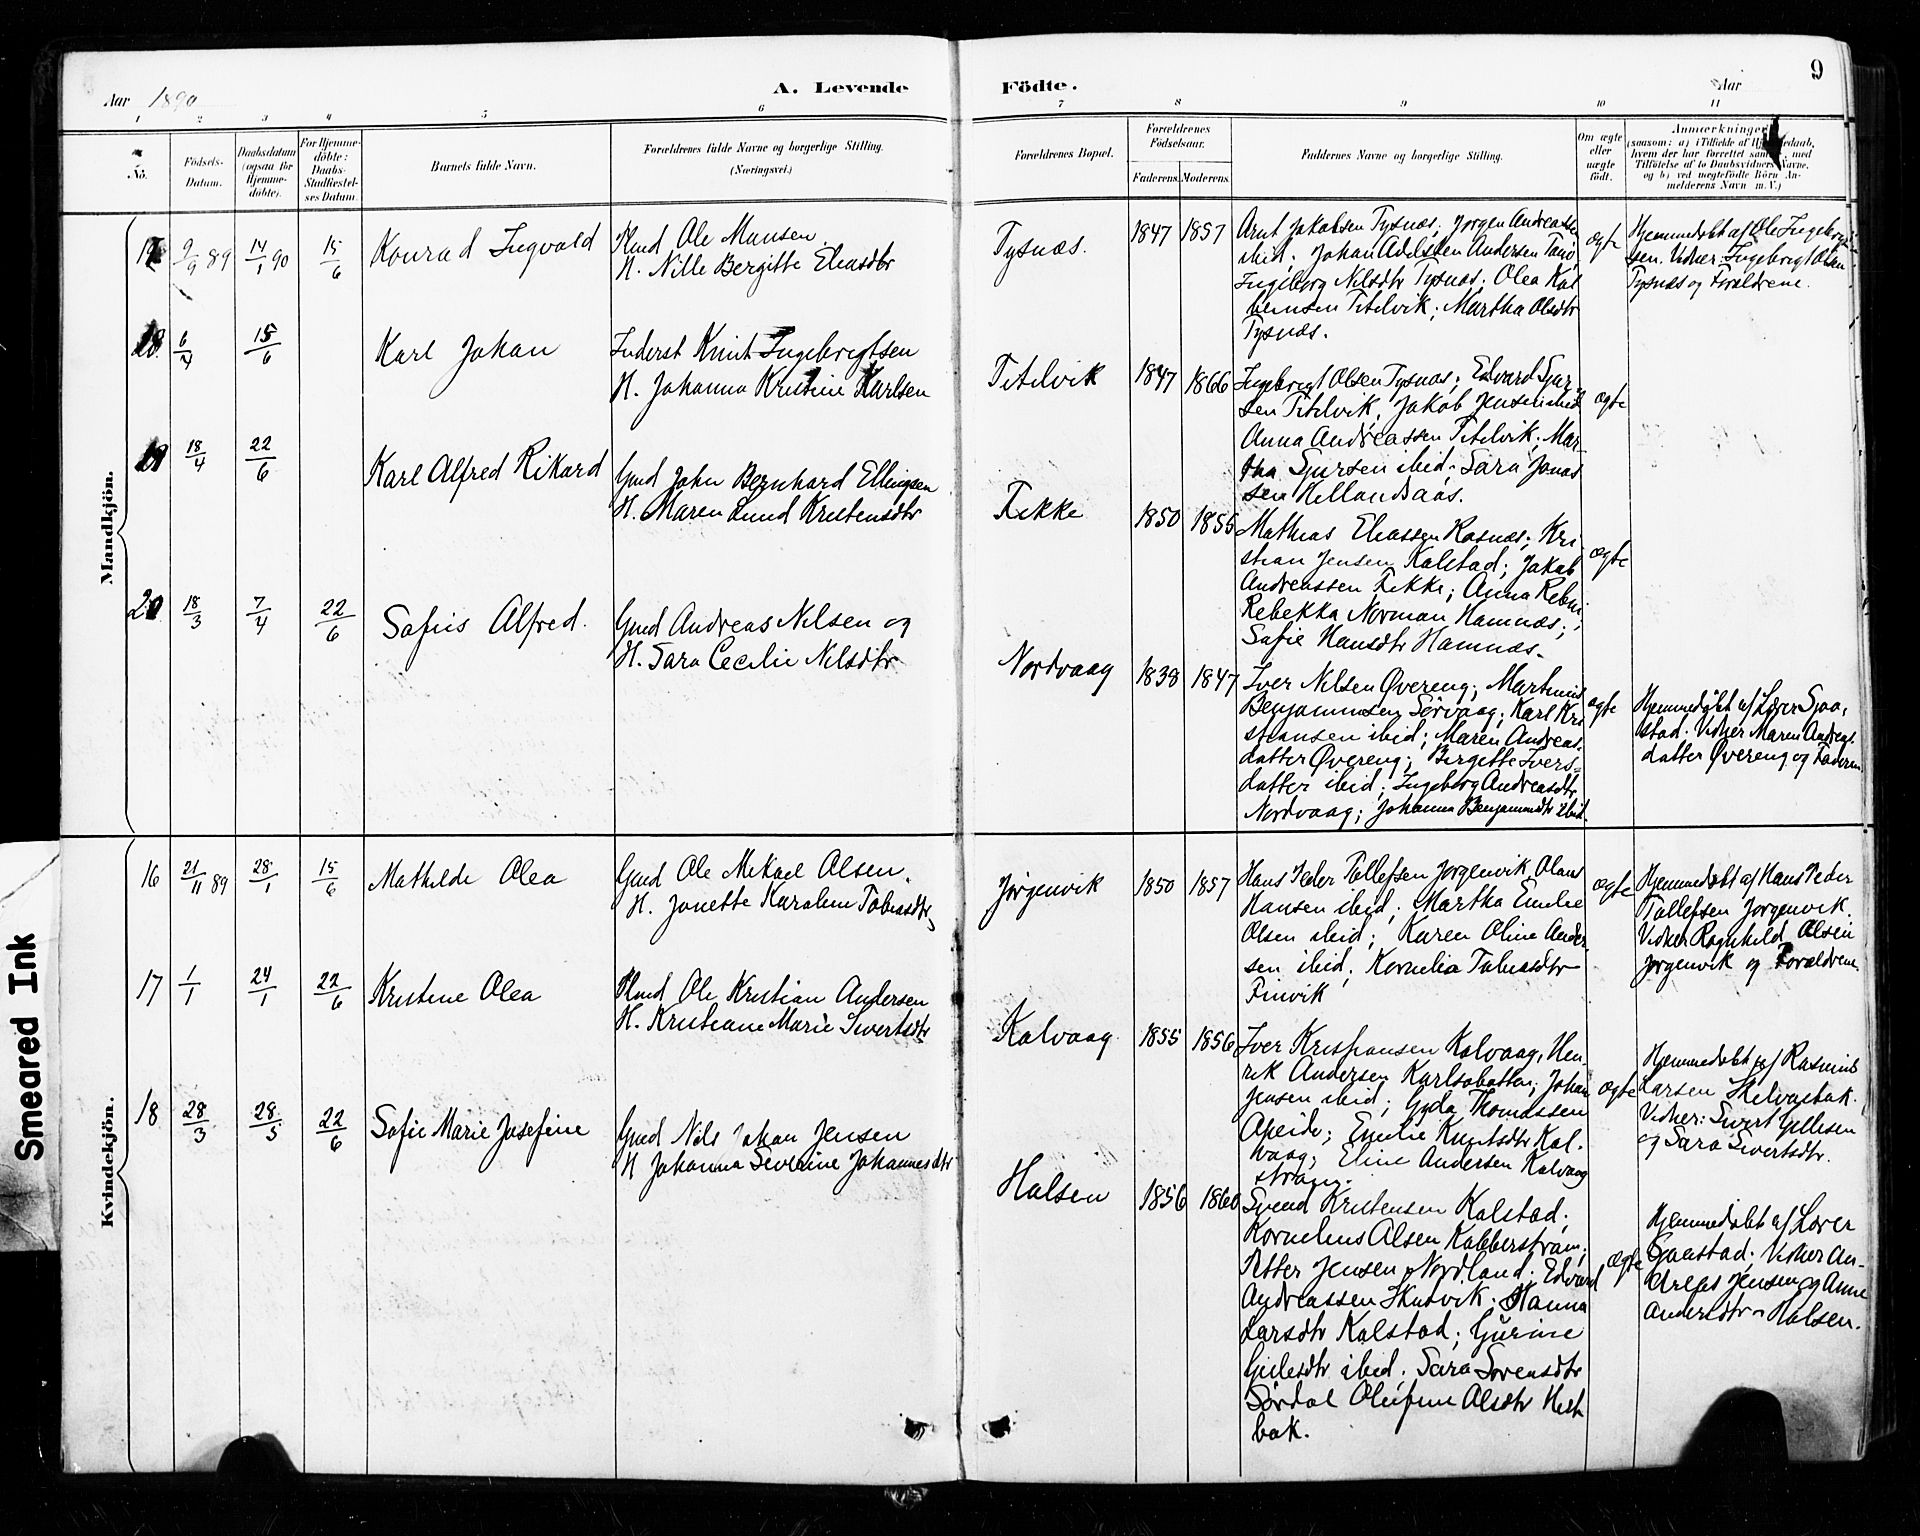 9
Aar 1890
A. Levende
Födte.
Aar
1 2 3 4 5 6 7 8 9 10 11
No.
Födsels-
Datum.
Daabsdatum
(ogsaa for
Hjemme-
döbte).
For Hjemme-
döbte:
Daabs-
Stadfæstel-
ses Datum.
Barnets fulde Navn.
Forældrenes fulde Navne og borgerlige Stilling.
(Næringsvei.)
Forældrenes Bopæl.
Forældrenes
Födselsaar.
Faderens.
Moderens.
Faddernes Navne og borgerlige Stilling.
Om ægte
eller
uægte
födt.
Anmærkninger
(saasom: a) i Tilfælde af Hjemmedaab,
hvem der har forrettet samme, med
Tilföielse af to Daabsvidners Navne,
og b) ved uægtefödte Börn An-
melderens Navn m. V.)
Mandkjön.
17 9/9 89 14/1 90 15/6 Konrad Ingvald
Ole Monsen
H. Nille Bergitte Eliasdtr
Tysnæs. 1847 1857
Arnt Jakobsen Tysnæs, Jørgen Andreassen
ibid. Johan Adelsten Andersen
Ingeborg Nilsdtr Tysnæs; Olea
Titelvik; Martha Olsdtr
Tysnæs.
ægte
Hjemmedøbt af Ole Ingebrigt-
sen. Vidner: Ingebrigt Olsen
Tysnæs og Forældrene.
18 6/4 15/6 Karl Johan
Inderst Knut Ingebrigtsen
H. Johanna Kristine Karlsen
Titelvik 1847 1866
Ingebrigt Olsen Tysnæs; Edvard Sjur-
sen Titelvik, Jakob Jensen ibid
Anna Andreassen Titelvik; Mar-
tha Sjursen ibid. Sara Jonas
sen
ægte
19 18/4 22/6 Karl Alfred Rikard
Gmd John Bernhard Ellingsen
H. Maren Lund Kristensdtr
Fikke 1850 1855
Mathias Eliassen Rosnæs; Kri
stian Jensen Kalstad; Jakob
Andreassen Fikke; Anna
Rebekka Norman Hamnæs;
Sofie Hansdtr Hamnæs.
ægte
20 18/3 7/4 22/6 Sofus Alfred.
Gmd Andreas Nilsen og
H. Sara Cecilie Nilsdtr
Nordvaag 1838 1847
Iver Nilsen Øvereng; Martinus
Benjaminsen Sørvaag; Karl Kri
stiansen ibid; Maren Andreas-
datter Øvereng; Birgitte Ivers-
datter ibid; Ingeborg Andreasdtr
Nordvaag; Johanna Benjamindtr ibid.
ægte
Hjemmedøbt af Lærer Sjaa-
stad. Vidner Maren Andreas-
datter Øvereng og Faderen
Kvindekjön.
16 21/11 89 28/1 15/6 Mathilde Olea
Gmd Ole Mikael Olsen.
H. Jonette Karoline Tobiasdtr
Jørgenvik 1850 1857
Hans Peder Tollefsen Jørgenvik, Olaus
Hansen ibid; Martha Emelie
Olsen ibid; Karen Oline Ander-
sen ibid; Kornelia Tobiasdtr
Finvik
ægte
Hjemmedøbt af Hans Peder
Tollefsen Jørgenvik.
Vidner Ragnhild Olsen
Jørgenvik og Forældrene
17 1/1 24/1 22/6 Kristine Olea
Ole Kristian Andersen
H. Kristiane Marie Sivertsdtr
Kalvaag 1855 1856
Iver Kristiansen Kalvaag, Hen
rik Andersen Karlsøbotten; Johan
Jensen ibid; Gyda Thomassen
Emelie Knutsdtr Kal-
vaag; Eline Andersen Kalvaag
strøm.
ægte
Hjemmedøbt af Rasmus
Larsen
Vidner: Sivert Gellesen
og Sara Sivertsdtr.
18 28/3 28/5 22/6 Sofie Marie Josefine
Gmd Nils Johan Jensen
H Johanna Severine Johannesdtr
Halsen 1856 1860
Svend Kristensen Kalstad;
Kornelius Olsen Kobberstrøm;
Petter Jensen Nordland. Edvard
Andreassen Skutvik. Hanna
Larsdtr Kalstad; Gurine
ibid; Sara Sørensdtr
Sørdal Olufine Olsdtr Hest
bak.
ægte
Hjemmedøbt af Lærer
Sjaastad. Vidner An-
dreas Jensen og Anne
Andersdtr Halsen.
Smeared Ink